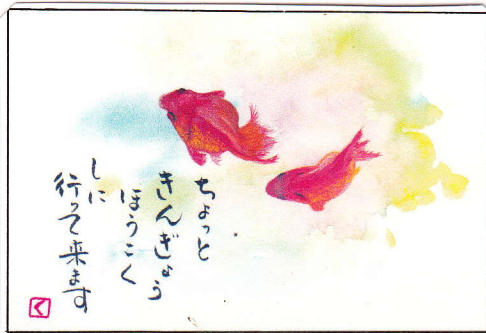 ちょっと
きんぎょう
ほうこく
しに
行って来ます
く